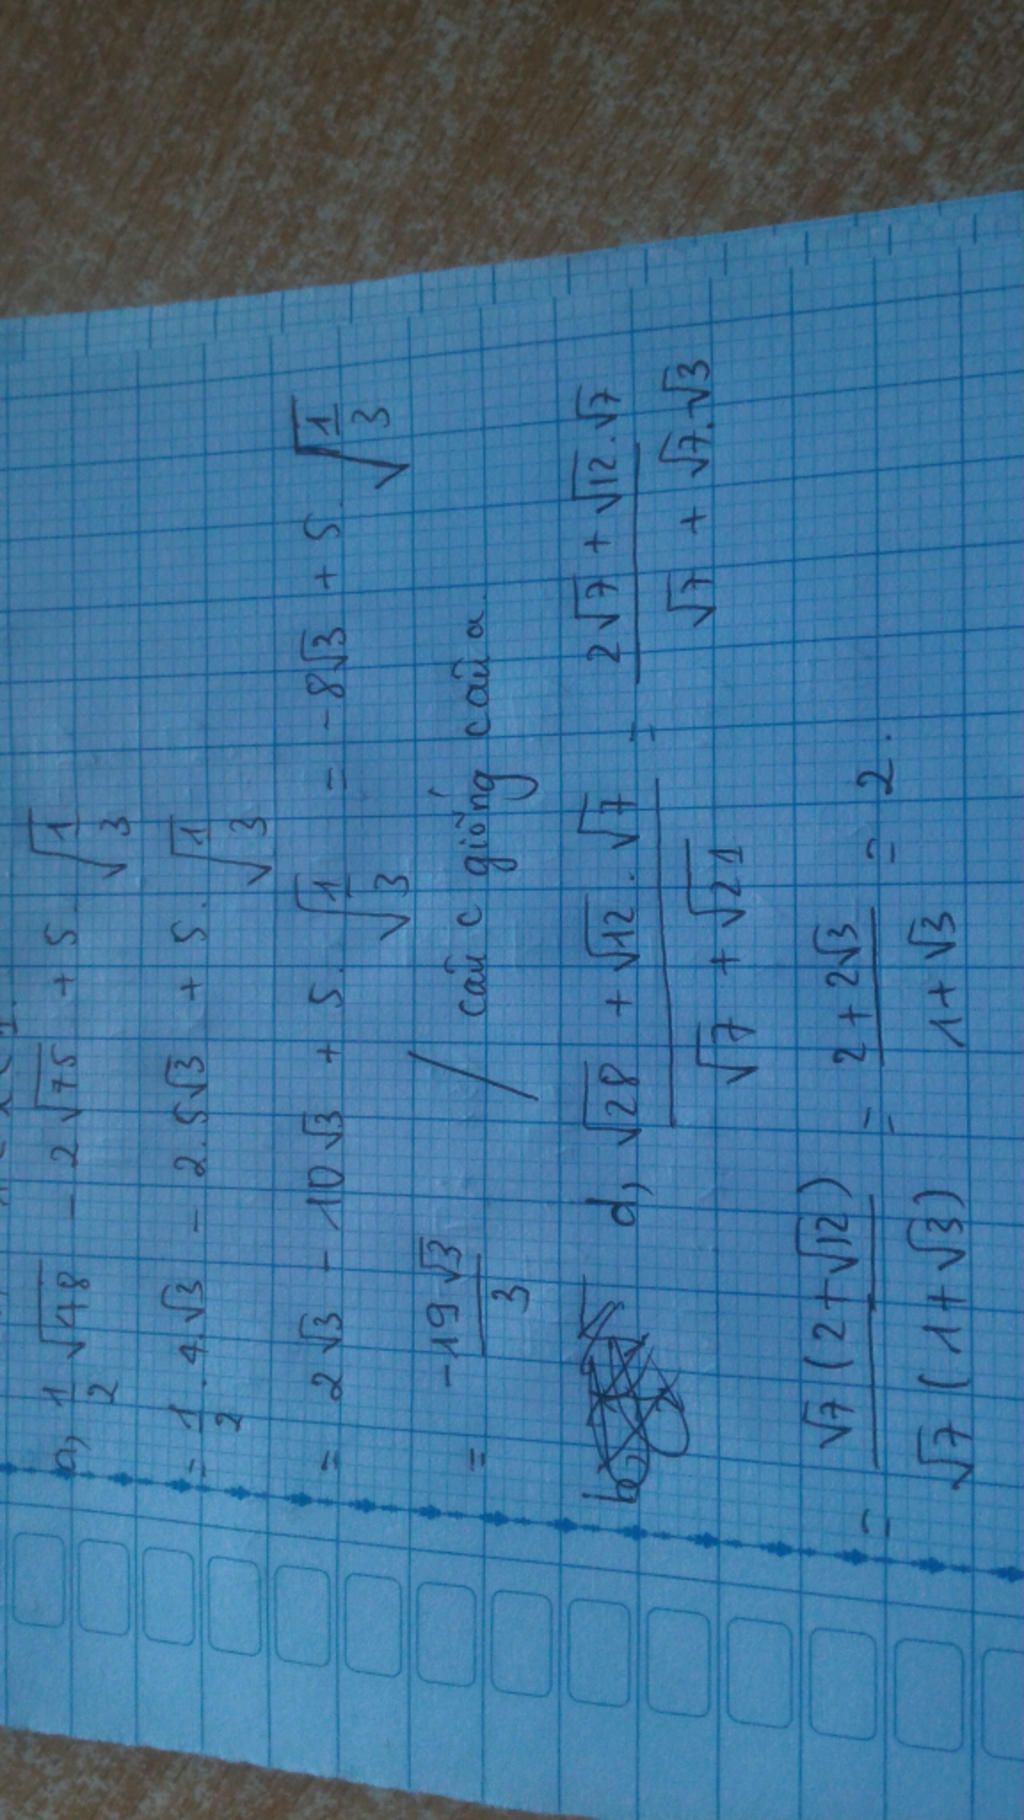 a, 1/2 √48 - 2√75 + 5.√1/3
= 1/2 . 4.√3 - 2.5√3 + 5.√1/3
= 2√3 - 10√3 + 5.√1/3 = -8√3 + 5.√1/3
= -19√3/3 / câu c giống câu a.
b, d, √28 + √12.√7 / √7 + √21 = 2√7 + √12.√7 / √7 + √7.√3
= √7 (2+√12) / √7 (1+√3) = 2+2√3 / 1+√3 = 2.